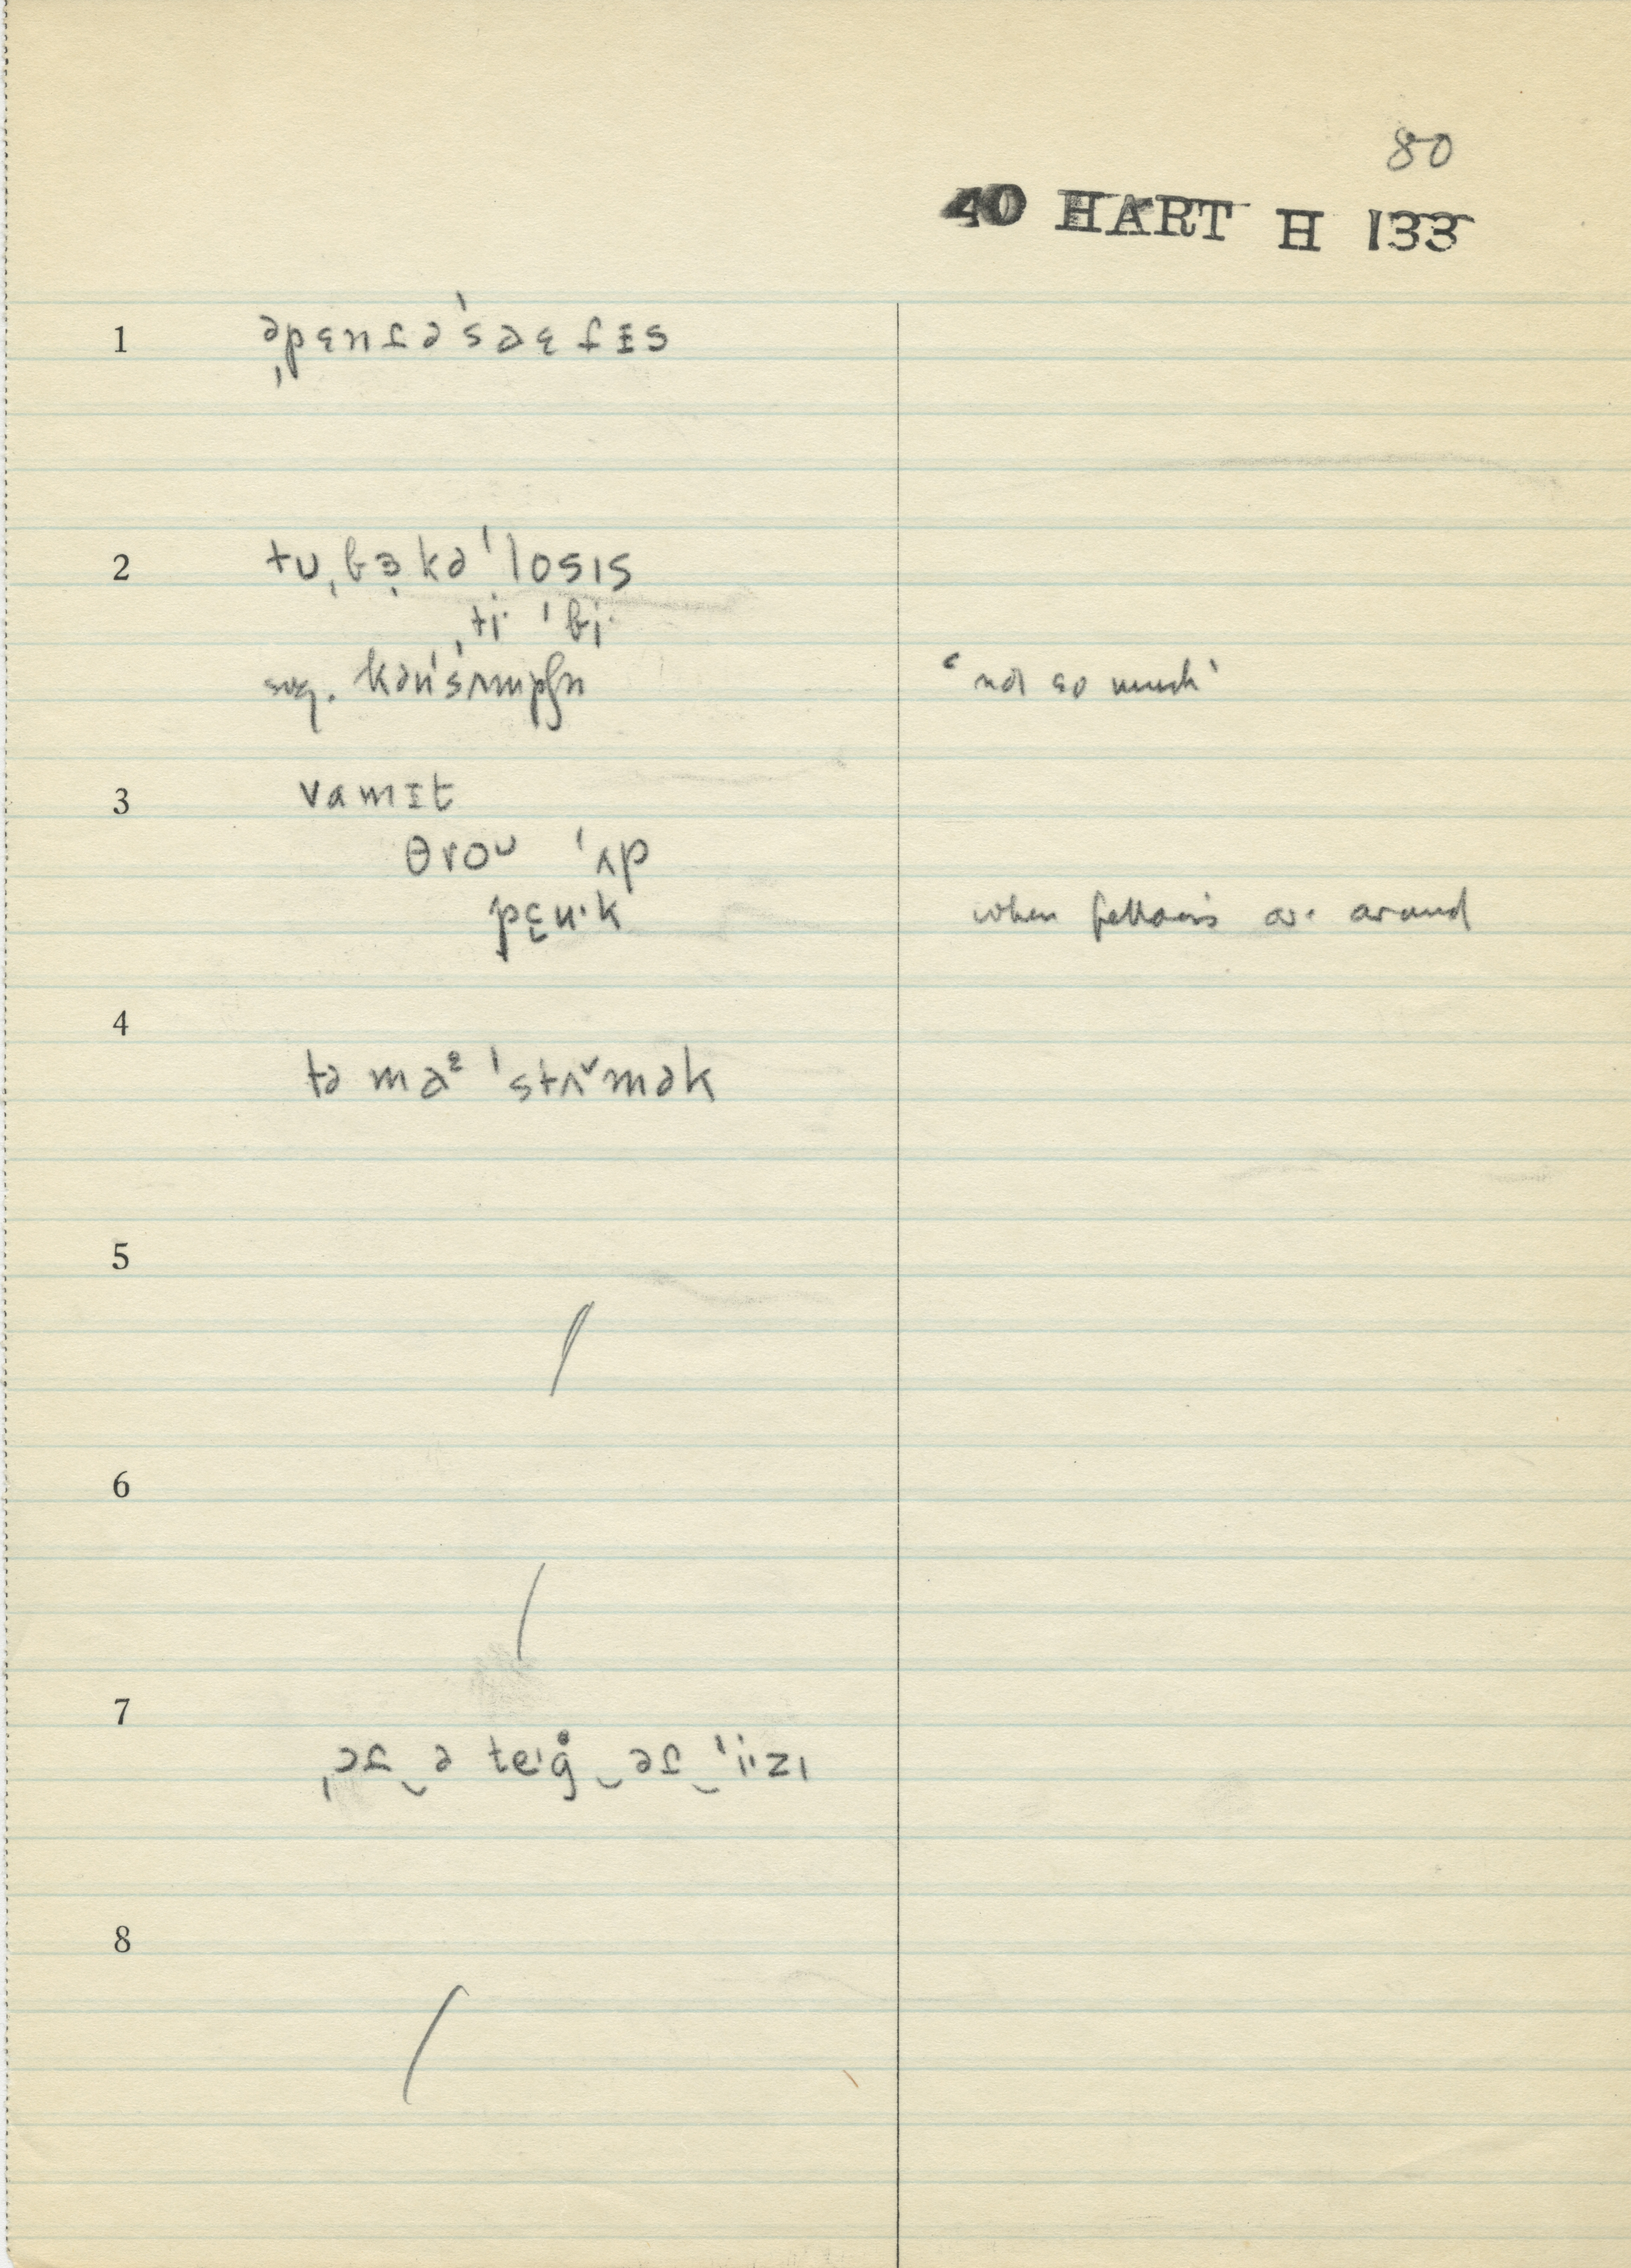 80
40 HART H 133
1 əˌpɛnfə'saɛfɪs
2 tuˌbɜkə'losɪs
ˌti· 'bi·
sug. kən'sʌmpʃn 'not so much'
3 vamɪt
θroᴜ 'ʌp
pɛu·k when fellows are around
4
tə maᵋ 'stʌˇmək
5
6
7
ˌəf‿ə teɪg̊‿əf‿'i·zɪ
8